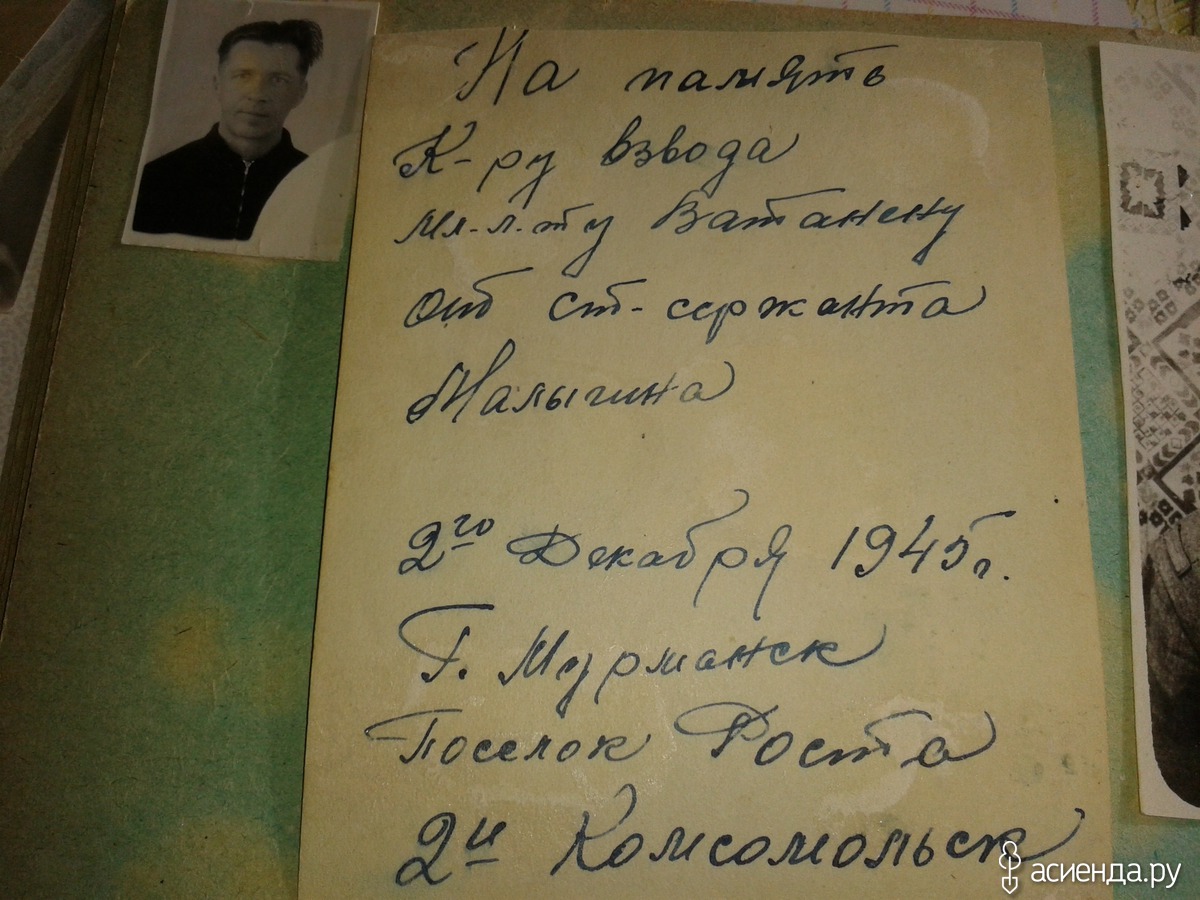 На память
К-ру взвода
мл.-л.-ту Ватанену
от ст-сержанта
Малыгина
2го Декабря 1945г.
Г. Мурманск
Поселок Роста
2й Комсомольск
асиенда.ру